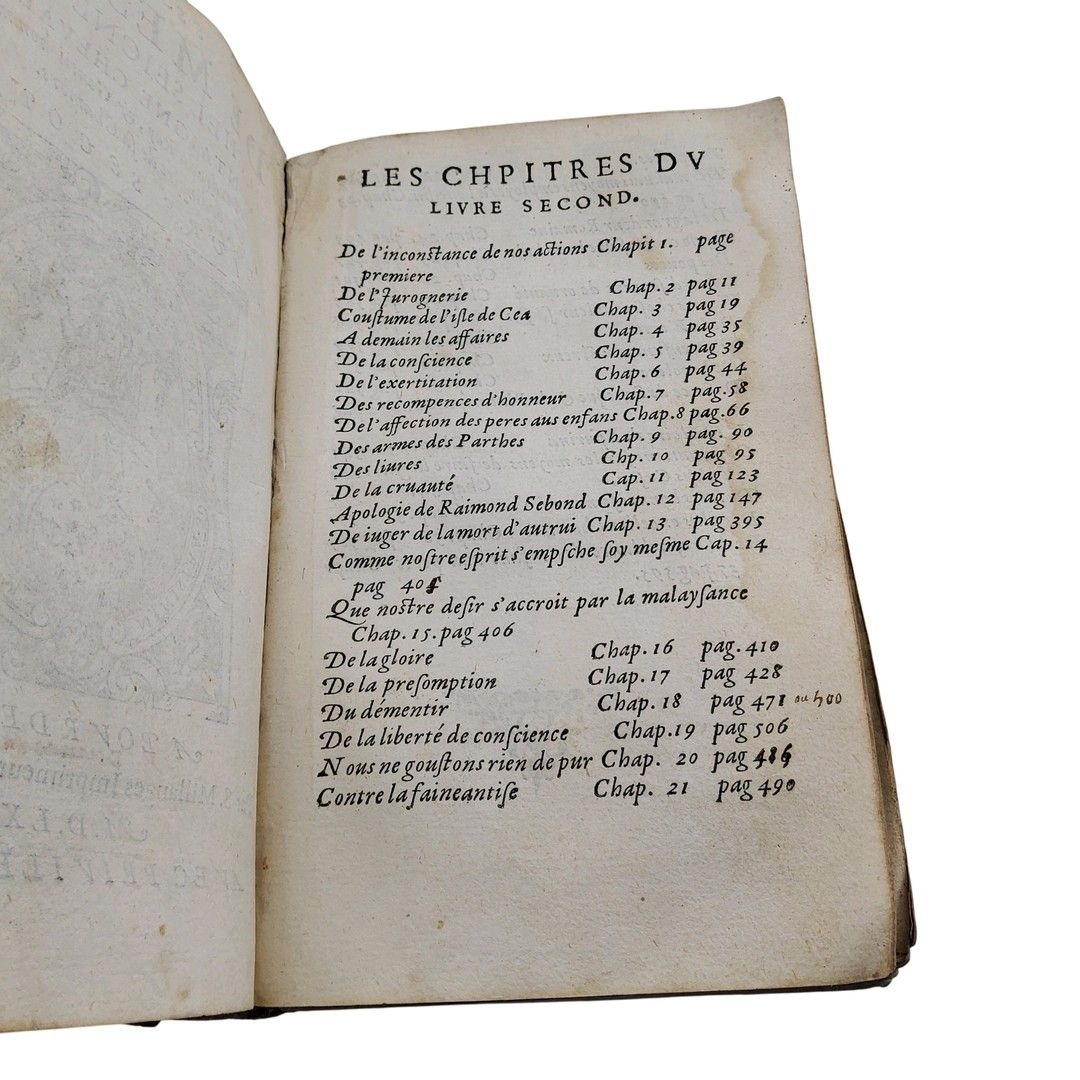 LES CHPITRES DV
LIVRE SECOND.
De l'inconſtance de nos actions Chapit 1. page
premiere
De l'Jurognerie Chap. 2 pag 11
Couſtume de l'iſle de Cea Chap. 3 pag 19
A demain les affaires Chap. 4 pag 35
De la conſcience Chap. 5 pag 39
De l'exertitation Chap. 6 pag 44
Des recompences d'honneur Chap. 7 pag. 58
De l'affection des peres aus enfans Chap. 8 pag. 66
Des armes des Parthes Chap. 9 pag. 90
Des liures Chp. 10 pag 95
De la cruauté Cap. 11 pag 123
Apologie de Raimond Sebond Chap. 12 pag 147
De iuger de la mort d'autrui Chap. 13 pag 395
Comme noſtre eſprit s'empſche ſoy meſme Cap. 14
pag
Que noſtre deſir s'accroit par la malayſance
Chap. 15. pag 406
De la gloire Chap. 16 pag. 410
De la preſomption Chap. 17 pag 428
Du démentir Chap. 18 pag 471 ou
De la liberté de conſcience Chap. 19 pag 506
Nous ne gouſtons rien de pur Chap. 20 pag 486
Contre la faineantiſe Chap. 21 pag 490